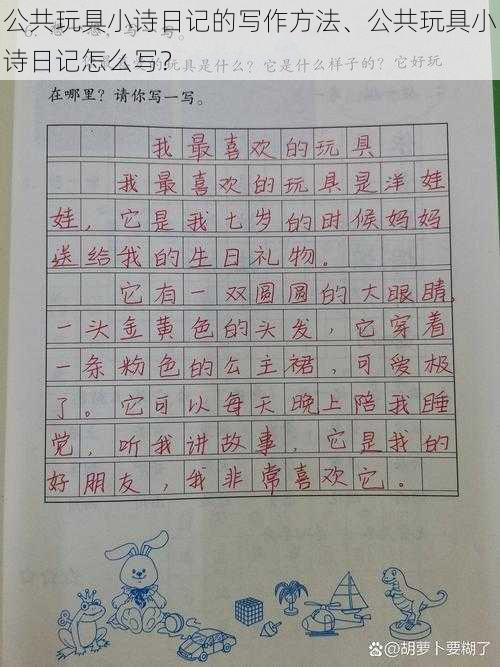 公共玩具小诗日记的写作方法、公共玩具小
诗日记怎么写?
玩具是什么?它是什么样子的?它好玩
在哪里?请你写一写。
我最喜欢的玩具
我最喜欢的玩具是洋娃
娃,它是我七岁的时候妈妈
送给我的生日礼物。
它有一双圆圆的大眼睛,
一头金黄色的头发,它穿着
一条粉色的公主裙,可爱极
了。它可以每天晚上陪我睡
觉,听我讲故事,它是我的
好朋友,我非常喜欢它。
@胡萝卜要糊了